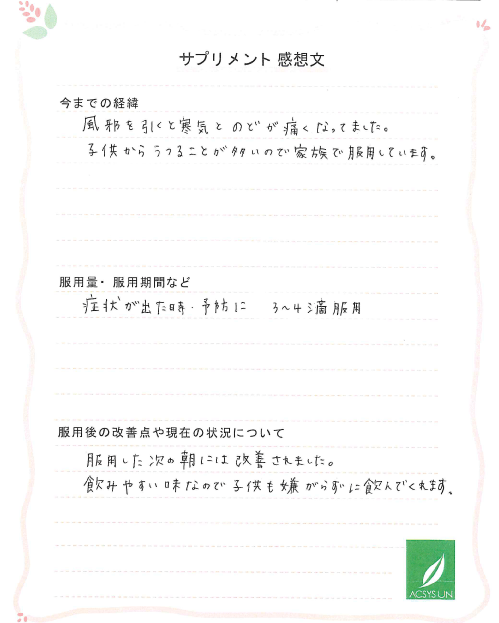 サプリメント 感想文
今までの経緯
風邪を引くと寒気とのどが痛くなってました。
子供からうつることが多いので家族で服用しています。
服用量・服用期間など
症状が出た時・予防に 3〜4滴服用
服用後の改善点や現在の状況について
服用した次の朝には改善されました。
飲みやすい味なので子供も嫌がらずに飲んでくれます。
ACSYS UN